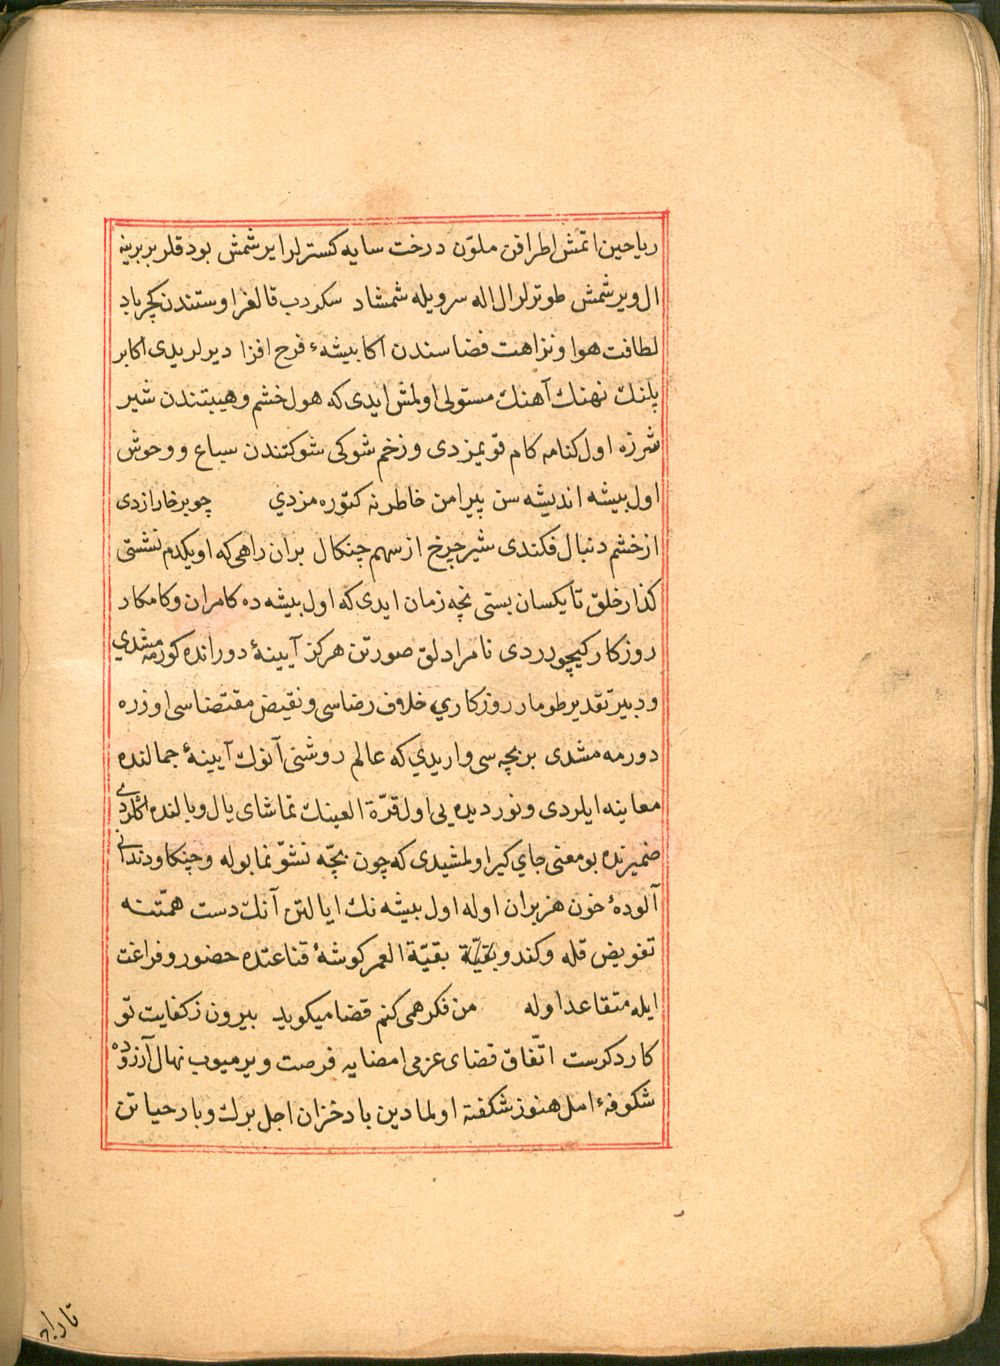 ریاحین اتمش اطرافن ملوّن درخت سایه کسترلر ایرشمش بودقلر بربرینه
ال ویرشمش طوترلر ال اله سرویله شمشاد سکردب قالغر اوستندن کچر باد
لطافت هوا و نزاهت فضاسندن اکا بیشهٔ فرح افزا دیرلریدی اکابر
پلنك نهنك آهنك مستولی اولمش ایدی که هول خشم و هیبتندن شیر
شرزه اول کنامه کام قویمزدی و زخم شوکی شوکتندن سباع و وحوش
اول بیشه اندیشه سن پیرامن خاطرنه کتوره مزدی چو بر خارا زدی
از خشم دنبال فکندی شیر چرخ از سهم چنکال بران راهی که او یکدم نشستی
کذار خلق تا یکسان بستی نچه زمان ایدی که اول بیشه ده کامران و کامکار
روزکار کیچوردی نامرادلق صورتن هرکز آیینهٔ دورانده کورمه مشدی
و دبیر تقدیر طومار روزکاری خلاف رضاسی و نقیض مقتضاسی اوزره
دورمه مشدی بر بچه سی واریدی که عالم روشنی آنوك آیینهٔ جمالنده
معاینه ایلردی و نور دیده یی اول قرّة العینك تماشای یال و بالنده اکلردی
ضمیرنده بو معنی جای کیر اولمشیدی که چون بچّه نشو نما بوله و چنکا و دندانی
آلودهٔ خون هزبران اوله اول بیشه نك ایالتن آنك دست همّتنه
تفویض قله و کندو بقیّة بقیّة العمر کوشهٔ قناعتده حضور و فراغت
ایله متقاعد اوله من فکر همی کنم قضا میکوید بیرون ز کفایت تو
کار دکرست اتّفاق قضای عزمی امضایه فرصت ویرمیوب نهال آرزوده
شکوفهٔ امل هنوز شکفته اولمادین باد خزان اجل برك و بار حیاتن
تاراج